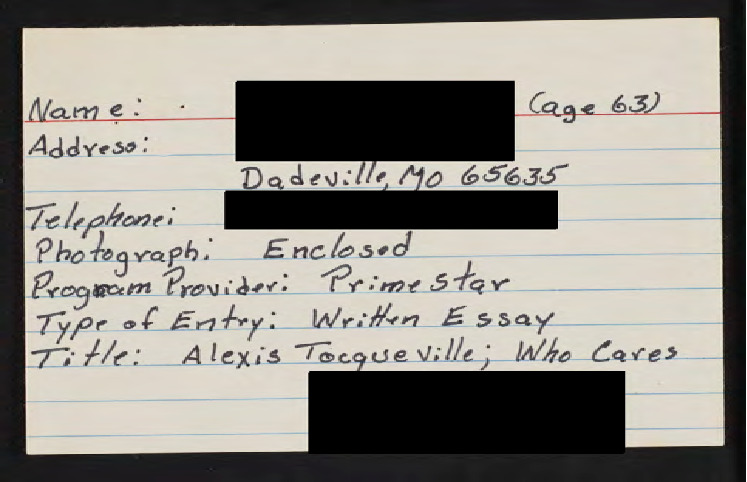 Name: (age 63)
Address:
Dadeville, Mo 65635
Telephone:
Photograph: Enclosed
Program Provider: Prime Star
Type of Entry: Written Essay
Title: Alexis Tocqueville; Who Cares